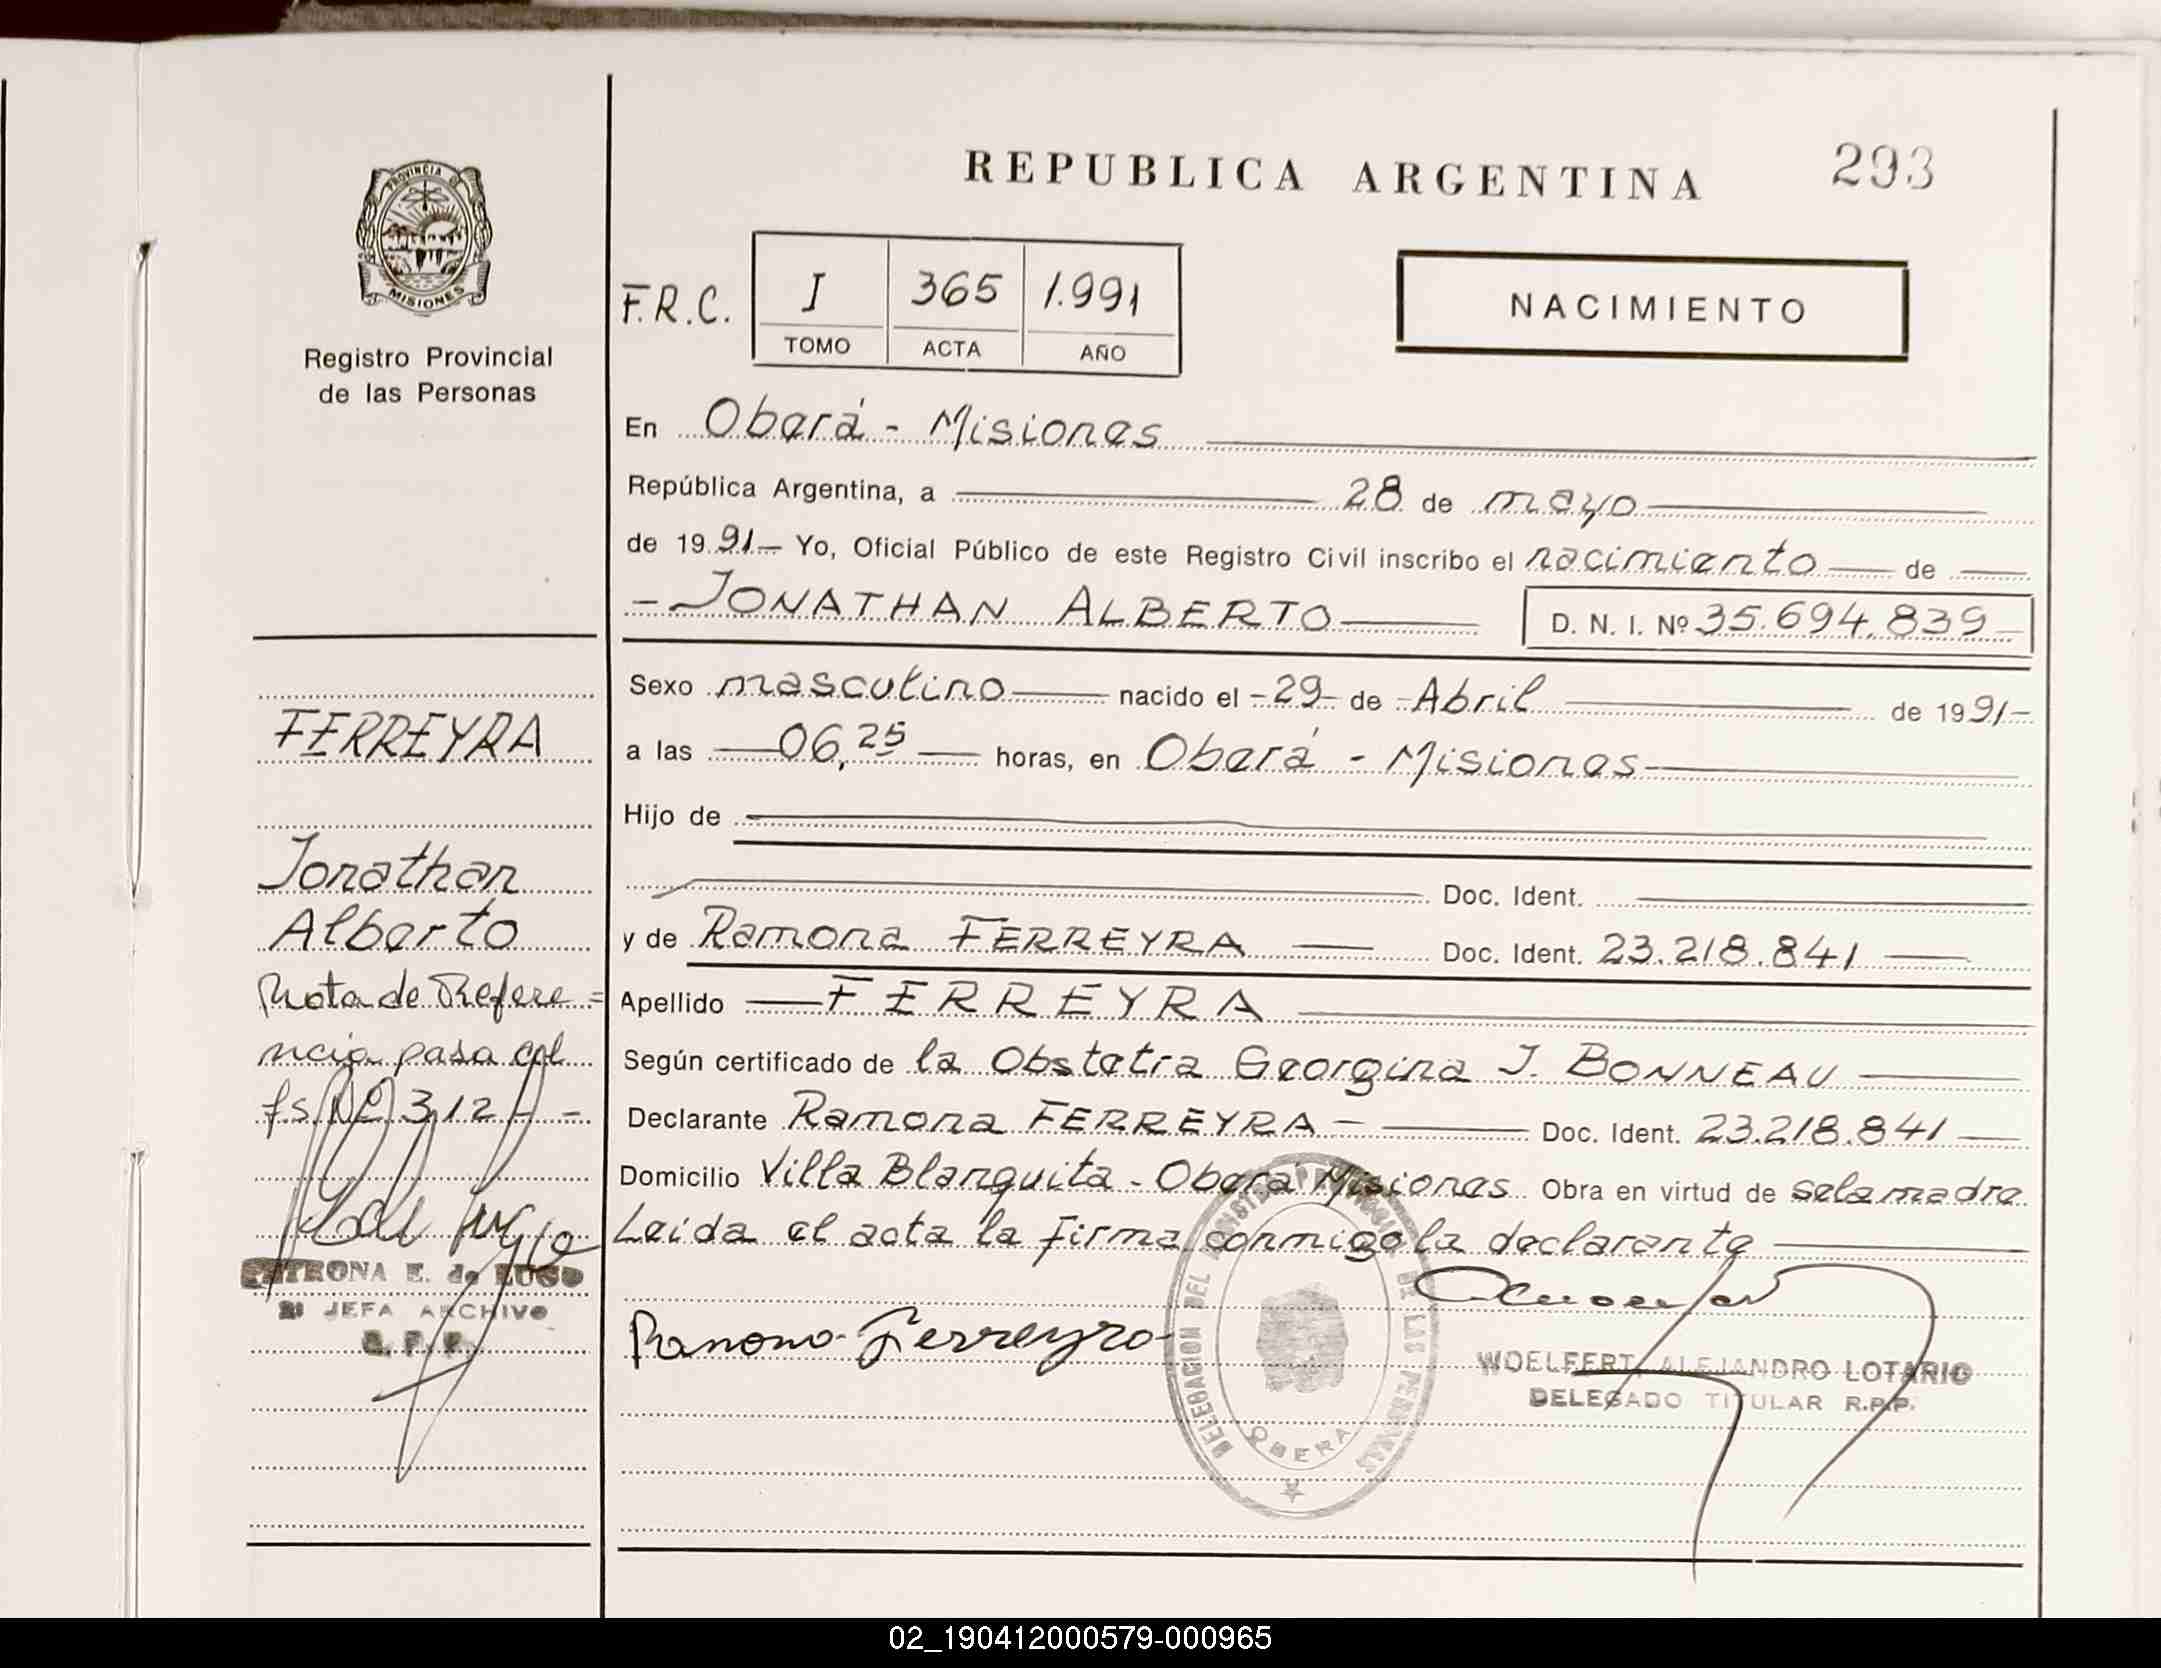 PROVINCIA D
MISIONES
Registro Provincial
de las Personas
FERREYRA
Jonathan
Alberto
Nota de Refere =
ncia pasa al
fs. Nº 312 - =
PETRONA E. de LUGO
JEFA ARCHIVO
R. P. P.
REPUBLICA ARGENTINA 293
F.R.C. I 365 1.991
TOMO ACTA AÑO
NACIMIENTO
En Oberá - Misiones
República Argentina, a 28 de mayo
de 1991 - Yo, Oficial Público de este Registro Civil inscribo el nacimiento de
- JONATHAN ALBERTO D. N. I. Nº 35.694.839 -
Sexo masculino nacido el - 29 - de - Abril de 1991 -
a las 06,25 horas, en Oberá - Misiones
Hijo de
Doc. Ident.
y de Ramona FERREYRA Doc. Ident. 23.218.841
Apellido FERREYRA
Según certificado de la Obstetra Georgina J. BONNEAU
Declarante Ramona FERREYRA - Doc. Ident. 23.218.841
Domicilio Villa Blanquita - Oberá Misiones Obra en virtud de sela madre
Leida el acta la firma conmigo la declarante
Ramona Ferreyra
DELEGACION DEL REGISTRO PROVINCIAL DE LAS PERSONAS
OBERA
WOELFERT, ALEJANDRO LOTARIO
DELEGADO TITULAR R.P.P.
02_190412000579-000965